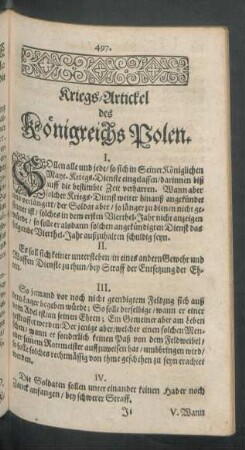 497.
Kriegs-Artickel
des
Königreichs Polen.
I.
SOllen alle und jede/ so sich in Seiner Königlichen
Mayt. Kriegs-Dienste eingelassen/ darinnen biß
auff die bestimbte Zeit verharren. Wann aber
solcher Kriegs-Dienst weiter hinauß angekündet
und verlänget/ der Soldat aber/ so länger zu dienen nicht ge-
/ solches in dem ersten Vierthel-Jahr nicht anzeigen
würde/ so solle er alsdann solchen angekündigten Dienst das
folgende Vierthel-Jahr außzuhalten schuldig seyn.
II.
Es soll sich keiner unterstehen/ in eines andern Gewehr und
Waffen Dienste zu thun/ bey Straff der Entsetzung der Eh-
ren.
III.
So jemand vor noch nicht geendigtem Feldzug sich auß
dem Läger begeben würde; So soll derselbige/ wann er einer
vom Adel ist/ an seinen Ehren; Ein Gemeiner aber am Leben
gestrafft werden: Der jenige aber/ welcher einen solchen Men-
schen/ wann er sonderlich keinen Paß von dem Feldweibel/
oder seinem Rottmeister auffzuweisen hat/ umbbringen wird/
solle solches rechtmässig von ihme geschehen zu seyn erachtet
werden.
IV.
Die Soldaten sollen unter einander keinen Hader noch
Zanck anfangen/ bey schwerer Straff.
Ji V. Wann